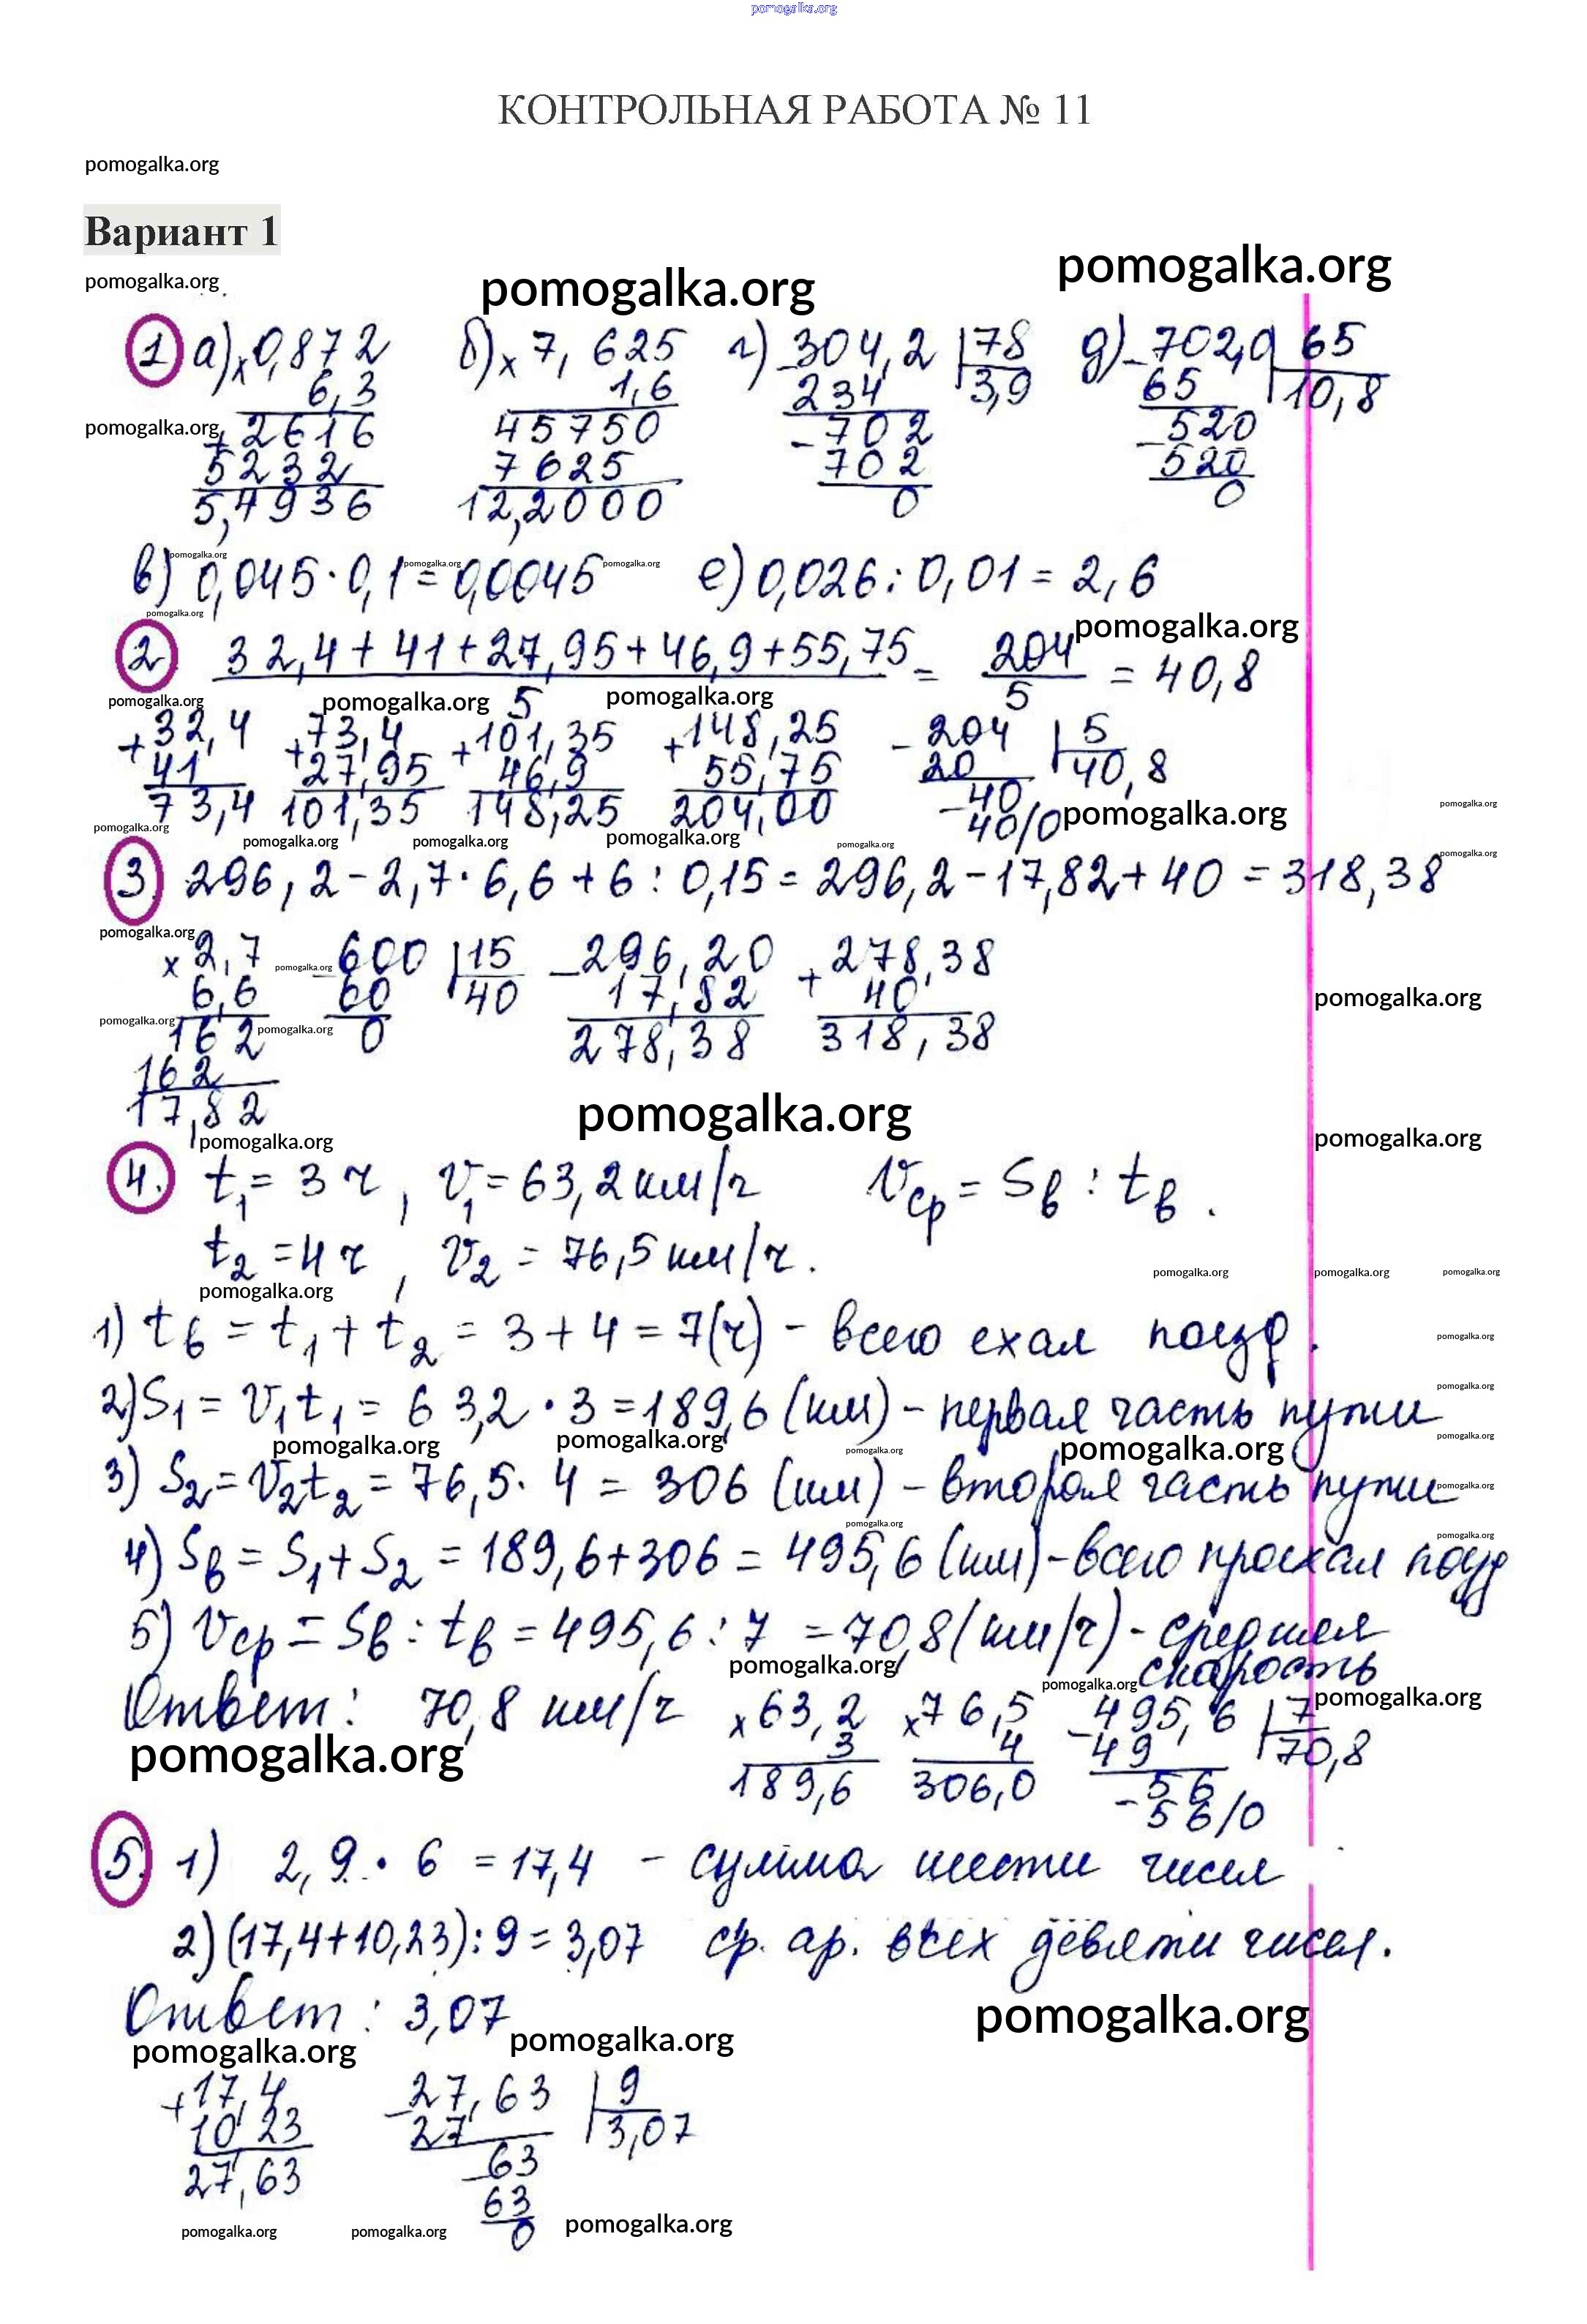 pomogalka.org
КОНТРОЛЬНАЯ РАБОТА № 11
pomogalka.org
Вариант 1
pomogalka.org pomogalka.org pomogalka.org
1 а) × 0,872 б) × 7,625 г) - 304,2 | 78 д) - 702,0 | 65
6,3 1,6 234 3,9 65 10,8
pomogalka.org + 2616 45750 - 702 - 520
5232 7625 702 520
5,4936 12,2000 0 0
pomogalka.org pomogalka.org pomogalka.org
в) 0,045 · 0,1 = 0,0045 е) 0,026 : 0,01 = 2,6
pomogalka.org pomogalka.org
2 32,4 + 41 + 27,95 + 46,9 + 55,75 = 204 = 40,8
5 5
pomogalka.org pomogalka.org pomogalka.org
+ 32,4 + 73,4 + 101,35 + 148,25 - 204 | 5
41 27,95 46,9 55,75 20 40,8
73,4 101,35 148,25 204,00 - 40
40/0 pomogalka.org pomogalka.org
pomogalka.org pomogalka.org pomogalka.org pomogalka.org pomogalka.org pomogalka.org
3. 296,2 - 2,7 · 6,6 + 6 : 0,15 = 296,2 - 17,82 + 40 = 318,38
pomogalka.org
× 2,7 - 600 | 15 - 296,20 + 278,38
pomogalka.org
6,6 60 40 17,82 40 pomogalka.org
pomogalka.org pomogalka.org
162 0 278,38 318,38
162
17,82 pomogalka.org
pomogalka.org pomogalka.org
4. t1 = 3 ч, v1 = 63,2 км/ч vср = Sв : tв.
t2 = 4 ч, v2 = 76,5 км/ч.
pomogalka.org pomogalka.org pomogalka.org pomogalka.org
1) tв = t1 + t2 = 3 + 4 = 7 (ч) - всего ехал поезд. pomogalka.org
pomogalka.org
2) S1 = v1t1 = 63,2 · 3 = 189,6 (км) - первая часть пути
pomogalka.org pomogalka.org pomogalka.org pomogalka.org pomogalka.org
3) S2 = v2t2 = 76,5 · 4 = 306 (км) - вторая часть пути pomogalka.org
pomogalka.org pomogalka.org
4) Sв = S1 + S2 = 189,6 + 306 = 495,6 (км) - всего проехал поезд
5) vср = Sв : tв = 495,6 : 7 = 70,8 (км/ч) - средняя
pomogalka.org pomogalka.org скорость
Ответ: 70,8 км/ч × 63,2 × 76,5 - 495,6 | 7 pomogalka.org
pomogalka.org 3 4 49 70,8
189,6 306,0 - 56
56/0
5. 1) 2,9 · 6 = 17,4 - сумма шести чисел
2) (17,4 + 10,23) : 9 = 3,07 ср. ар. всех девяти чисел.
Ответ: 3,07 pomogalka.org
pomogalka.org pomogalka.org
+ 17,4 - 27,63 | 9
10,23 27 3,07
27,63 - 63
63
0
pomogalka.org pomogalka.org pomogalka.org